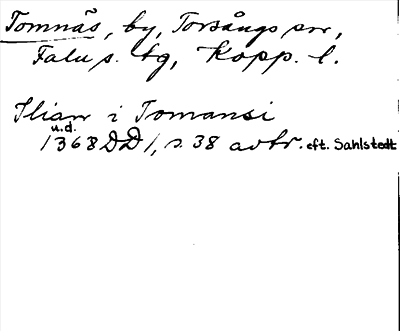 Tomnäs, by, Torsångs sn,
Falu s. tg, Kopp. l.
Ilian i Tomansi
u.d.
1368 DD 1, s. 38 avtr. eft. Sahlstedt